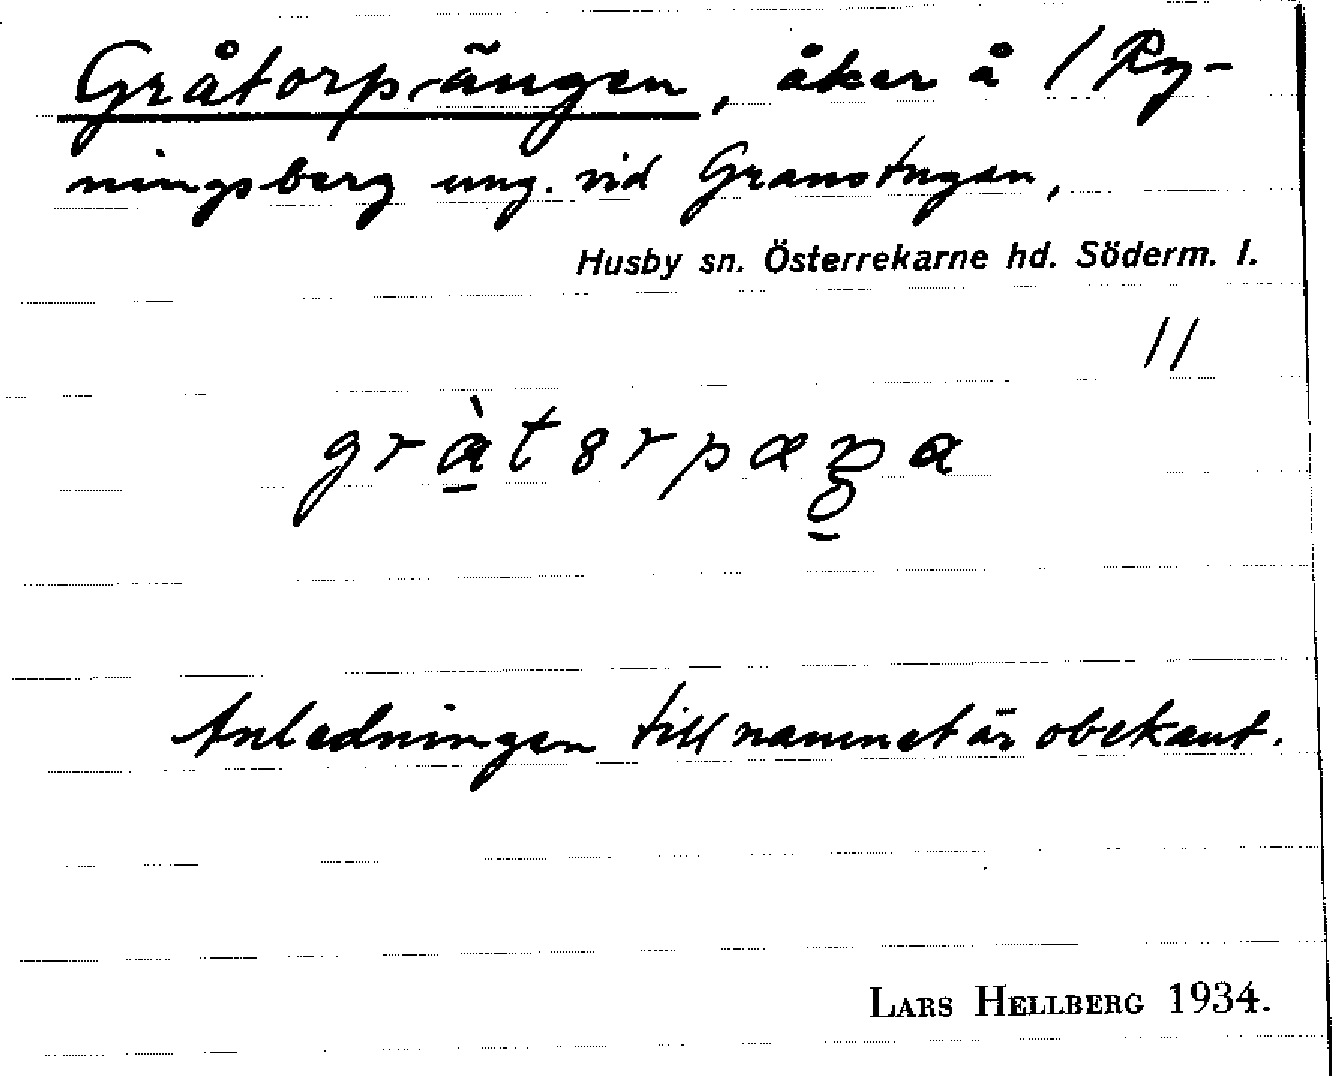 Gråtorpängen, åker å / Ry-
ningsberg ung. vid Granstugan,
Husby sn. Österrekarne hd. Söderm. l.
//
Anledningen till namnet är obekant.
LARS HELLBERG 1934.